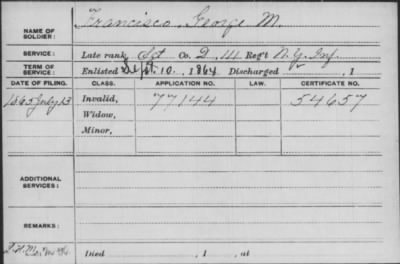 NAME OF SOLDIER: Francisco, George M.
SERVICE: Late rank, Sgt Co. D, 111 Reg't N.Y. Inf.
TERM OF SERVICE: Enlisted Sept. 10, 1864 Discharged , 1
DATE OF FILING. CLASS. APPLICATION NO. LAW. CERTIFICATE NO.
1865 July 13 Invalid, 77144 54657
Widow,
Minor,
ADDITIONAL SERVICES:
REMARKS:
Died , 1 , at